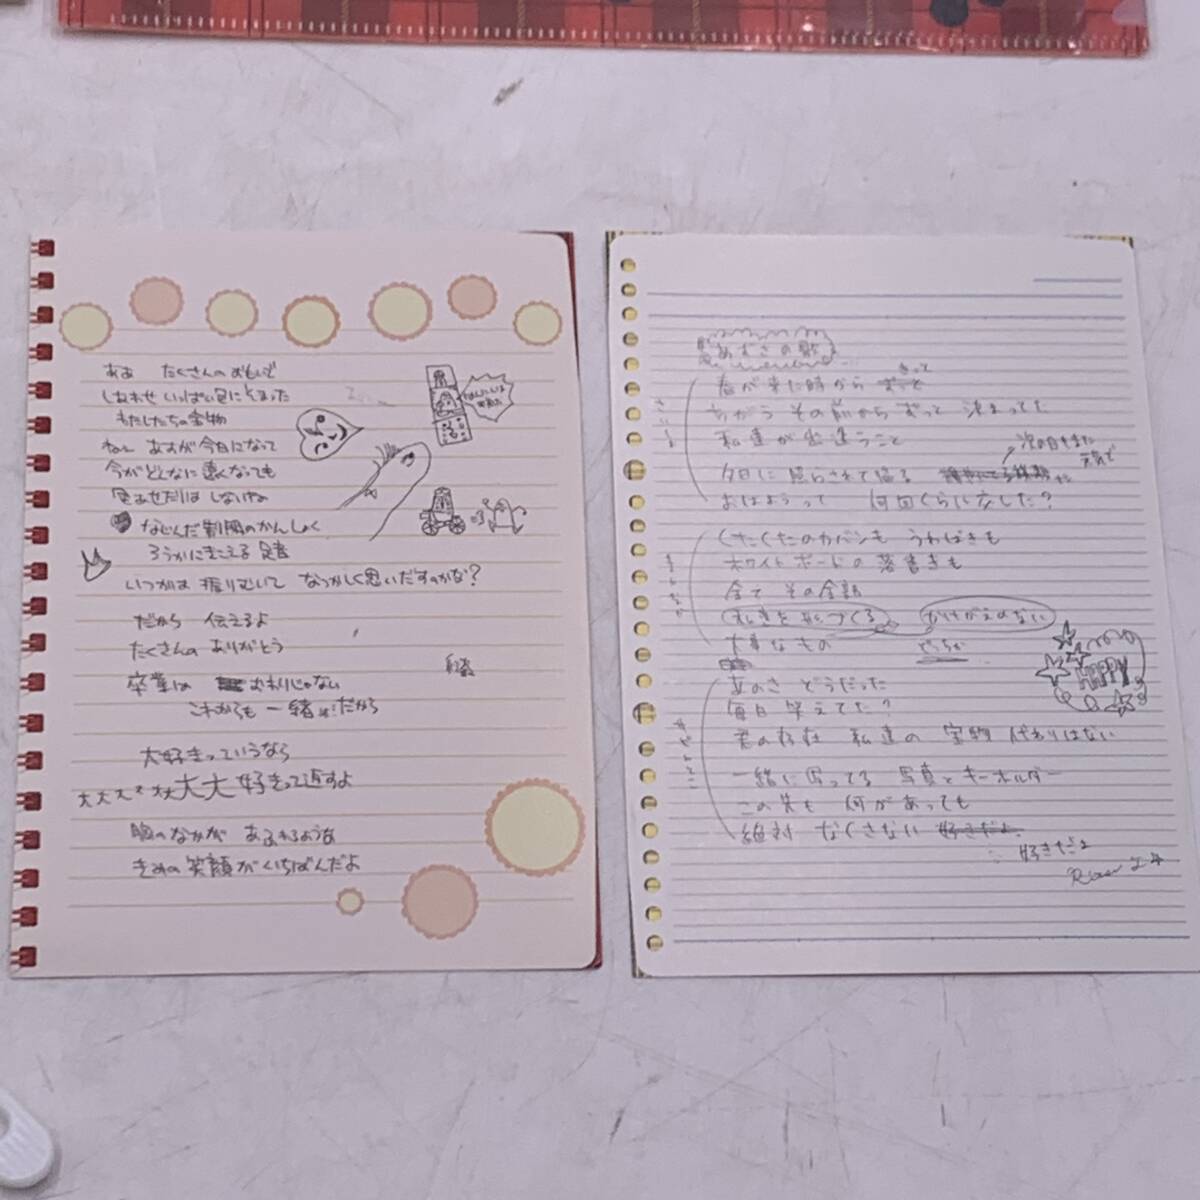 ああ たくさんのおもいで
しあわせ いっぱい 色にそまった
わたしたちの宝物
ねー あすが今日になって
今がどんなに遠くなっても
色あせたりは しないけね
なじんだ制服のかんしょく
ろうかにきこえる 足音
いつかは 振りむいて なつかしく思いだすのかな?
だから 伝えるよ
たくさんの ありがとう
卒業は おわりじゃない
これからも 一緒 だから
大好きっていうなら
大大大大大大大大 好きって返すよ
胸のなかが あふれるような
きみの 笑顔がいちばんだよ
あずさの歌
きっと
春が来た時から ずっと
ちがう その前から ずっと 決まってた
私達が出逢うこと
次の日もまた
元気で
夕日に 照らされて帰る
おはようって 何回くらい交した?
くたくたのカバンも うわばきも
ホワイトボードの 落書きも
全て その全部
私達を形づくる かけがえのない
大事なもの どっちか
HAPPY
あのさ どうだった
毎日 笑えてた?
君の存在 私達の 宝物 代わりはない
一緒に写ってる 写真とキーホルダー
この先も 何があっても
絶対 なくさない 好きだよ
好きだよ